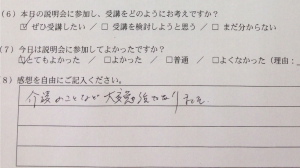 (6) 本日の説明会に参加し、受講をどのようにお考えですか?
☑ ぜひ受講したい / □ 受講を検討しようと思う / □ まだ分からない
(7) 今日は説明会に参加してよかったですか?
☑とてもよかった / □よかった / □普通 / □よくなかった(理由:
(8) 感想を自由にご記入ください。
介護のことなど大変